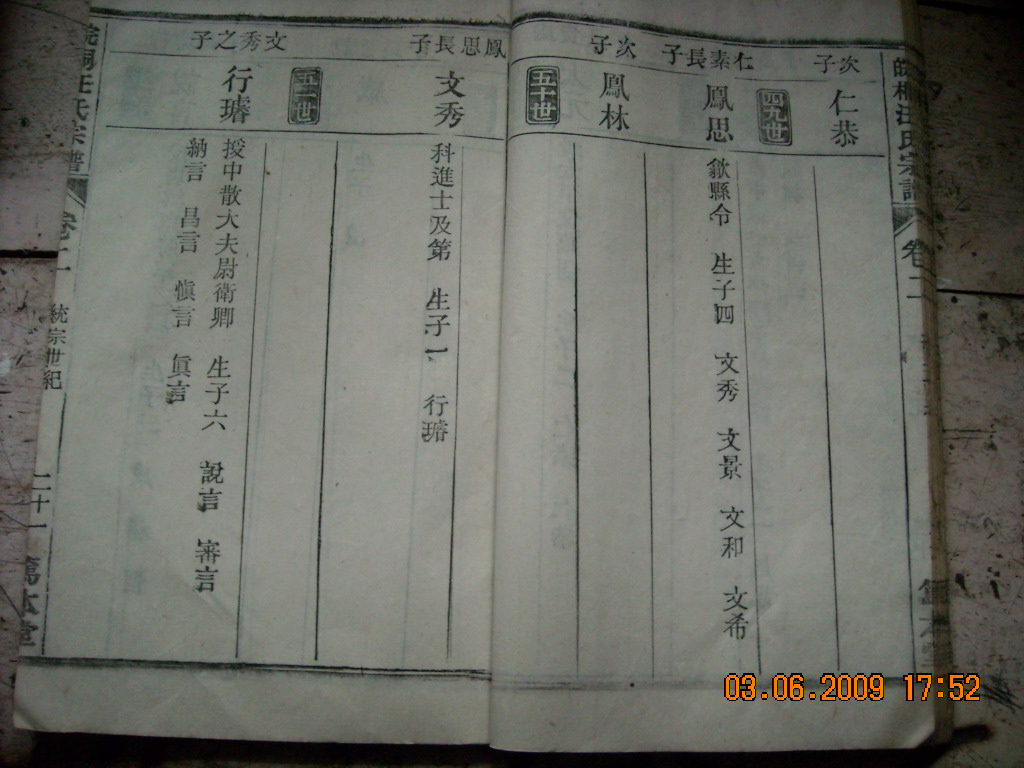 皖桐汪氏宗譜
卷二
次子
仁恭
四九世
仁素長子
鳳思
歙縣令 生子四 文秀 文景 文和 文希
次子
鳳林
五十世
鳳思長子
文秀
科進士及第 生子一 行瑃
五一世
文秀之子
行瑃
授中散大夫尉衛卿 生子六 說言 審言
納言 昌言 慎言 眞言
皖桐汪氏宗譜
卷二
統宗世紀
二十一
篤本堂
03.06.2009 17:52